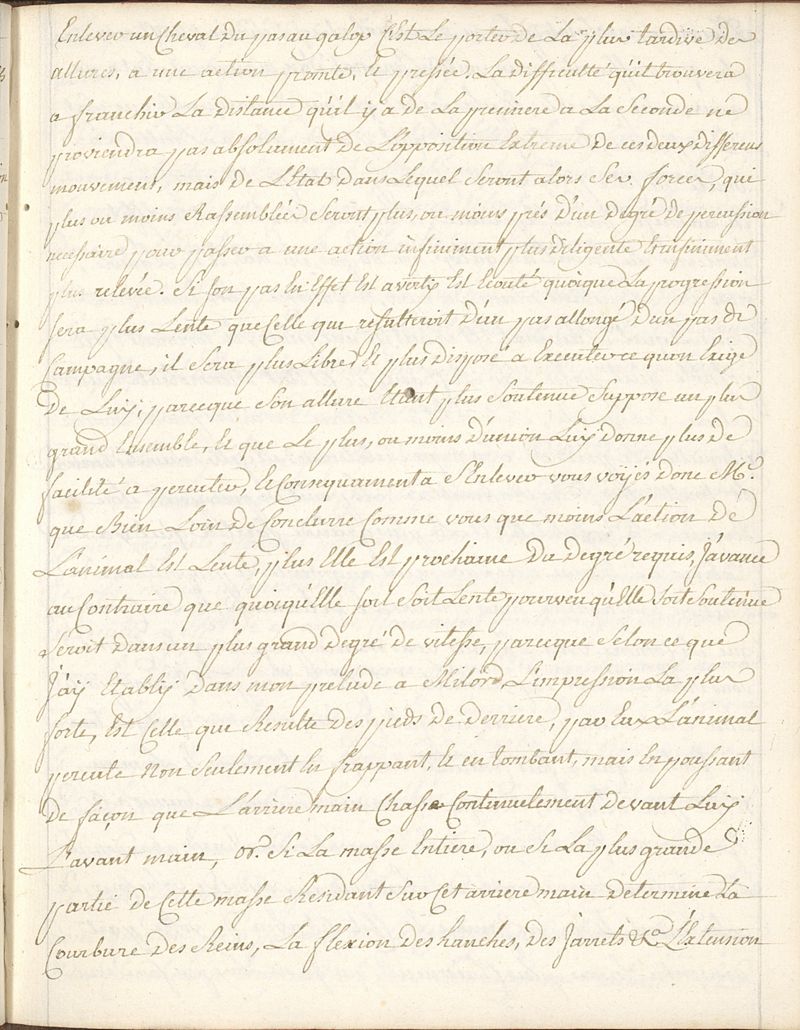 Enlever un Cheval du pas au galop C'Est Le porter de La plus tardive de
allures, a une action promte, & pressée. La difficulté qu'il trouvera
a franchir La distance qu'il y a de La premiere a La Seconde ne
proviendra pas absolument de L'opposition Extreme de ces deux differens
mouvement, mais de L'Etat dans Lequel Seront alors Ses forces, qui
plus ou moins Rassemblées Seront plus, ou moins prés d'un degré de percussion
necessaire pour passer a une action infiniment plus diligente & infiniment
plus relevée. Si son pas En Effet Est averty Est Ecouté quoique La progression
sera plus Lente que Celle qui resulteroit d'un pas allongé d'un pas de
Campagne, il Sera plus Libre, & plus disposé a Executer ce qu'on Exige
De Luy, parceque Son allure Etant plus Soutenue Suppose un plus
grand Ensemble, & que Le plus, ou moins d'union Luy donne plus de
facilité a percuter, & Consequament a S'Enlever vous voyés donc Mr.
que Bien Loin de Conclurre Comme vous que moins L'action De
L'animal Est Lente, plus Elle Est prochaine du degré requis, J'avance
au Contraire que quoiqu'Elle soit Soit Lente pourveu qu'Elle Soit Soutenue
Seroit dans un plus grand degré de vitesse, parceque Selon ce que
J'ay Etably dans mon prelude a Milord L'impression La plus
forte, Est Celle que Resulte des pieds de derriere, par Eux L'animal
percute Non Seulement En frappant, & en tombant, mais En poussant
de façon que L'arriere main Chasse Continuelement devant Luy
L'avant main, or. Si La masse Entiere, ou Si La plus grande
partie de Cette masse Residant Sur Cet arriere main determine La
Courbure des Reins, La flexion des hanches, des Jarrets &ca L'Extension